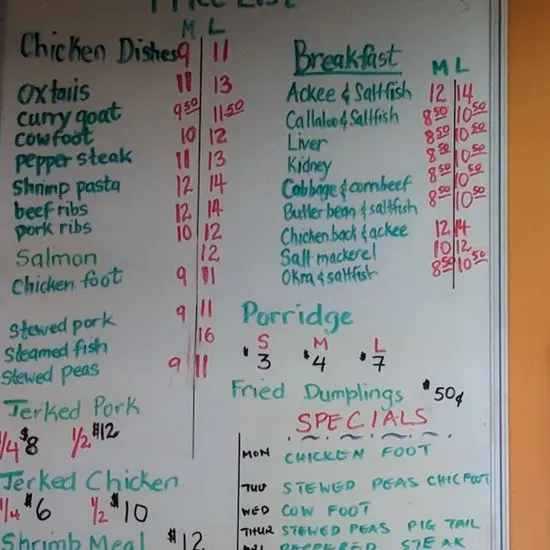 PRICE LIST
M L
Chicken Dishes 9 11
Oxtails 11 13
curry goat 9 50 11 50
cowfoot 10 12
pepper steak 11 13
Shrimp pasta 12 14
beef ribs 12 14
pork ribs 10 12
Salmon 12
Chicken foot 9 11
Stewed pork 9 11
Steamed fish 16
Stewed peas 9 11
Jerked Pork
1/4 $8 1/2 $12
Jerked Chicken
1/4 $6 1/2 $10
Shrimp Meal $12
Breakfast
M L
Ackee & Saltfish 12 14
Callaloo & Saltfish 8 50 10 50
Liver 8 50 10 50
Kidney 8 50 10 50
Cabbage & cornbeef 8 50 10 50
Butter bean & saltfish 8 50 10 50
Chicken back & ackee 12 14
Salt mackerel 10 12
Okra & saltfish 8 50 10 50
Porridge
S M L
$3 $4 $7
Fried Dumplings $50¢
SPECIALS
MON CHICKEN FOOT
TUE STEWED PEAS CHIC FOOT
WED COW FOOT
THUR STEWED PEAS PIG TAIL
FRI PEPPERED STEAK